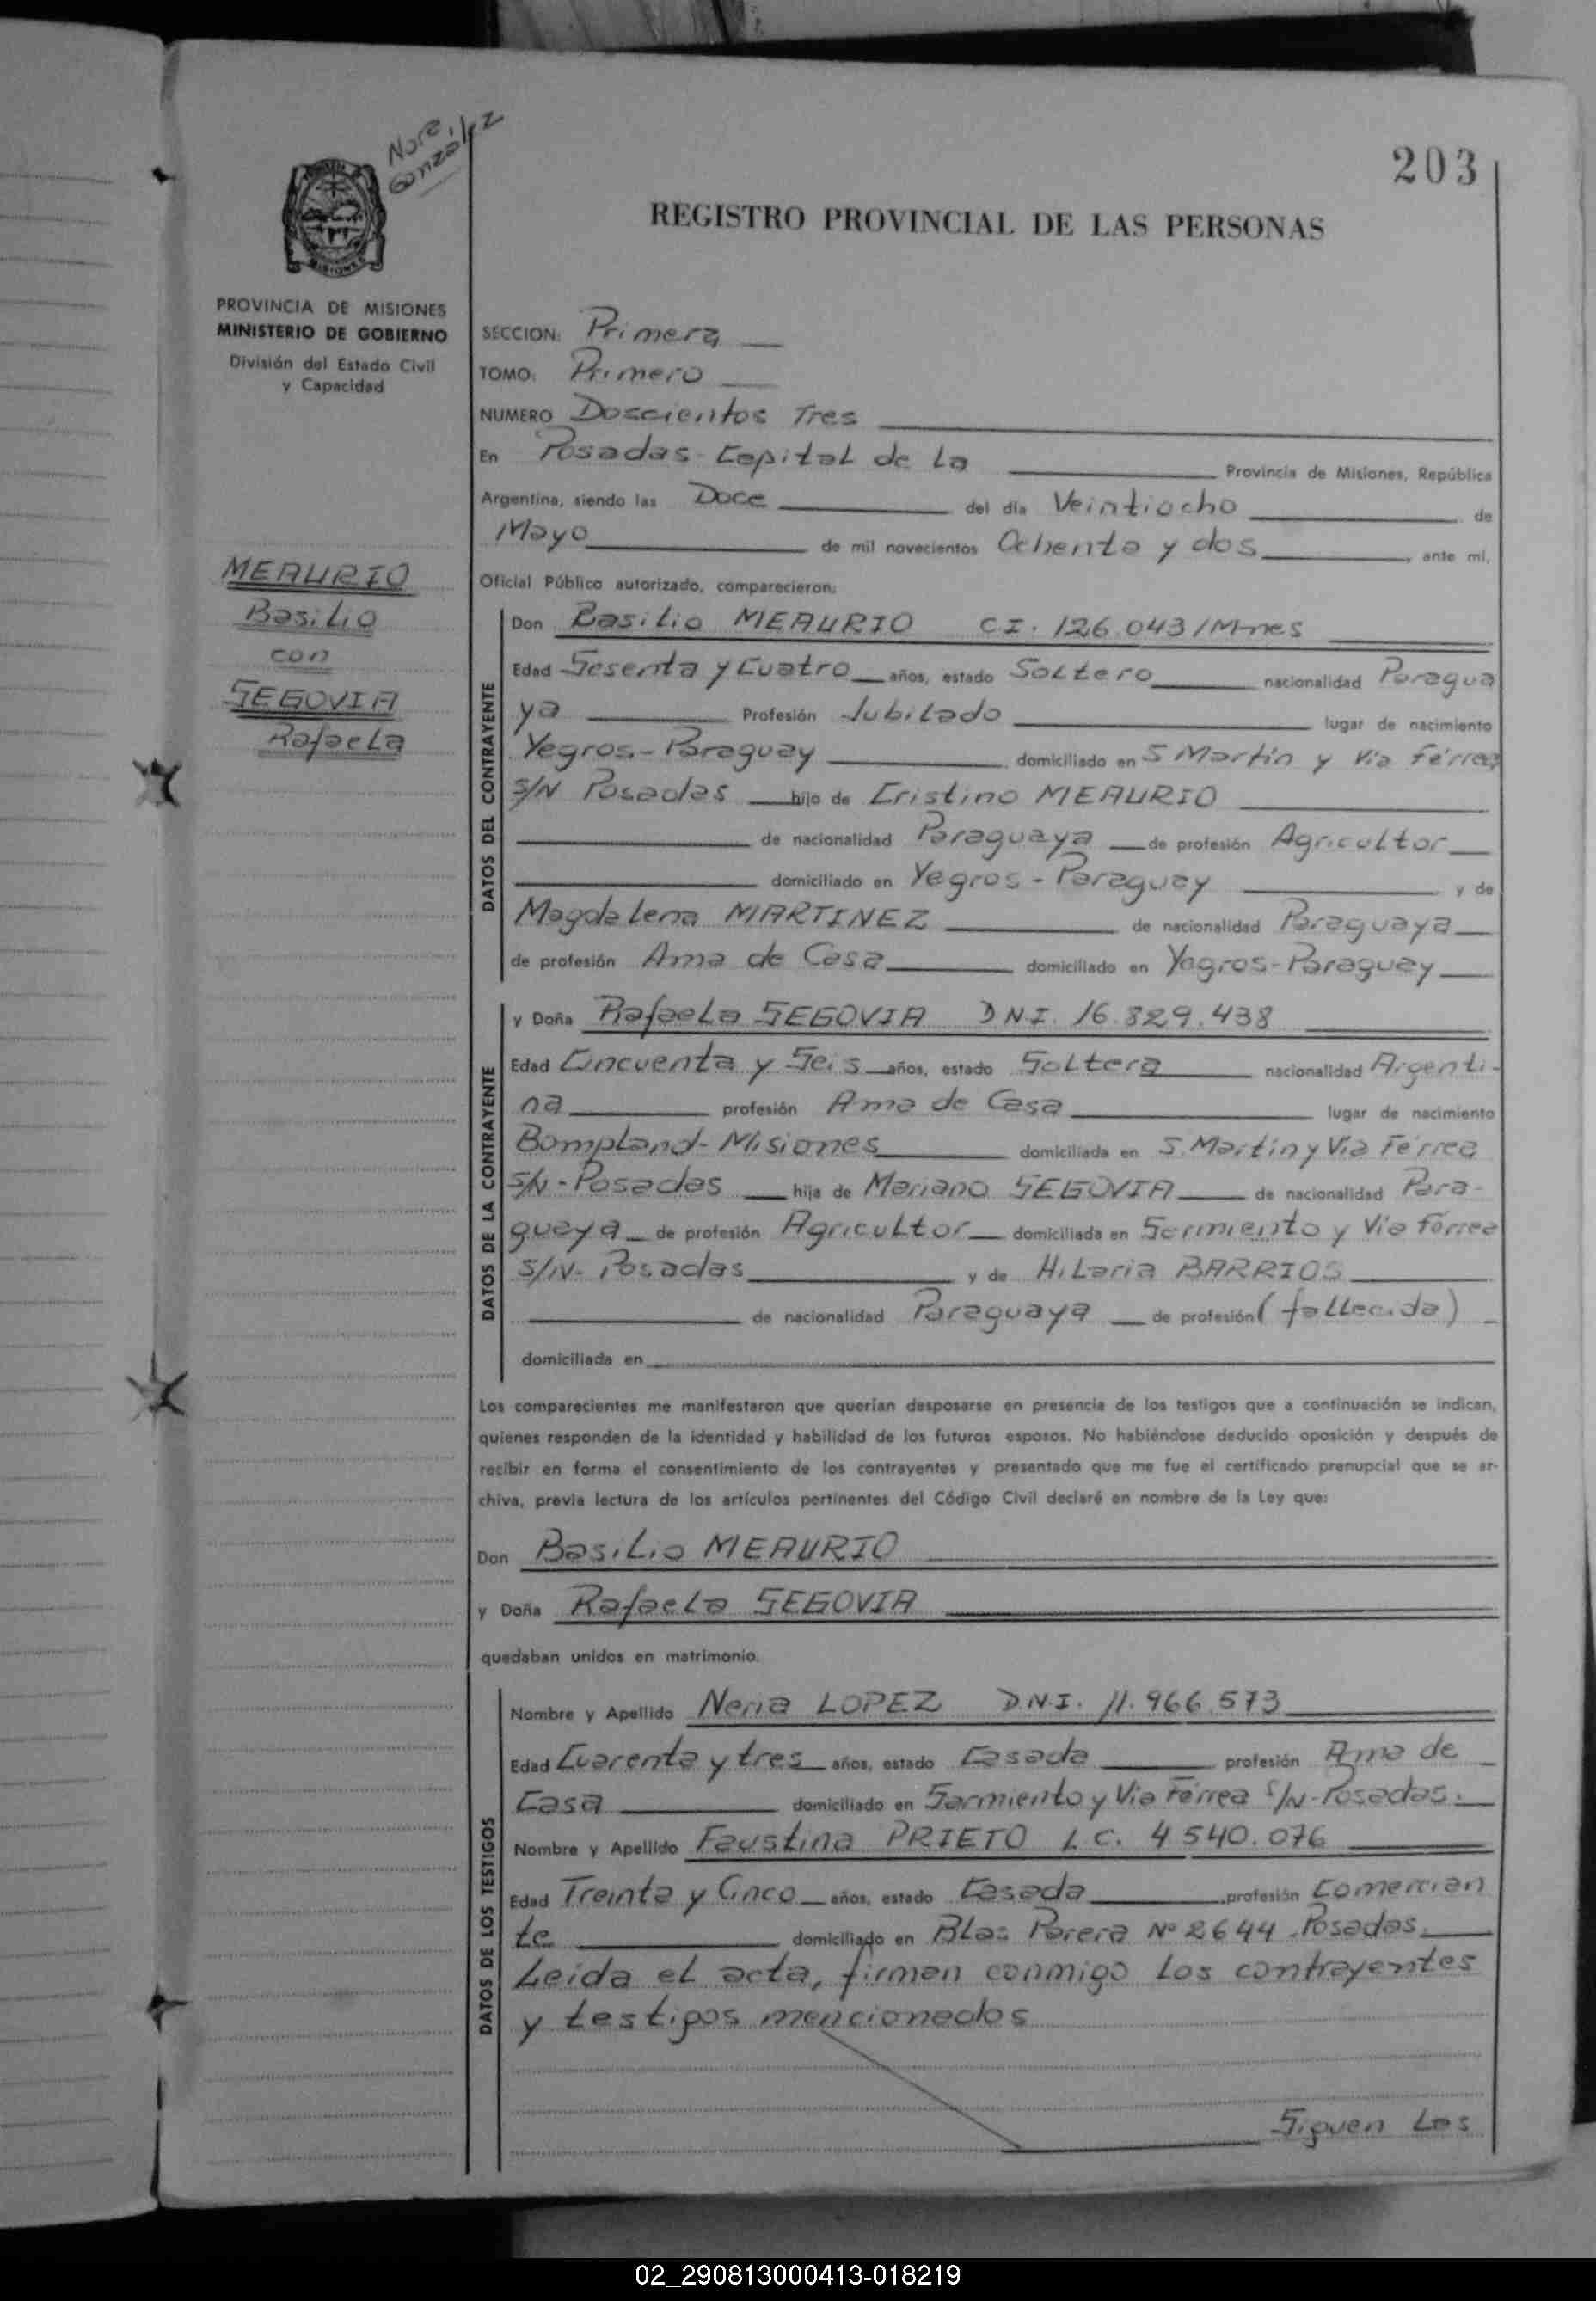 Nora
Gonzalez
203
REGISTRO PROVINCIAL DE LAS PERSONAS
MISIONES
PROVINCIA DE MISIONES
MINISTERIO DE GOBIERNO
División del Estado Civil
y Capacidad
SECCION: Primera
TOMO: Primero
NUMERO Doscientos Tres
En Posadas Capital de La Provincia de Misiones, República
Argentina, siendo las Doce del día Veintiocho de
Mayo de mil novecientos Ochenta y dos, ante mí,
Oficial Público autorizado, comparecieron:
MEAURIO
Basilio
con
SEGOVIA
Rafaela
DATOS DEL CONTRAYENTE
Don Basilio MEAURIO CI. 126.043/M-nes
Edad Sesenta y Cuatro años, estado Soltero nacionalidad Paragua
ya Profesión Jubilado lugar de nacimiento
Yegros.- Paraguay domiciliado en S Martín y Vía Férrea
S/N Posadas hijo de Cristino MEAURIO
de nacionalidad Paraguaya de profesión Agricultor
domiciliado en Yegros - Paraguay y de
Magdalena MARTINEZ de nacionalidad Paraguaya
de profesión Ama de Casa domiciliado en Yegros-Paraguay
DATOS DE LA CONTRAYENTE
y Doña Rafaela SEGOVIA D N.I. 16.829.438
Edad Cincuenta y Seis años, estado Soltera nacionalidad Argenti-
na profesión Ama de Casa lugar de nacimiento
Bompland- Misiones domiciliada en S. Martin y Via Férrea
S/N - Posadas hija de Mariano SEGOVIA de nacionalidad Para-
guaya de profesión Agricultor domiciliada en Sarmiento y Via Férrea
S/N- Posadas y de Hilaria BARRIOS
de nacionalidad Paraguaya de profesión (fallecida)
domiciliada en
Los comparecientes me manifestaron que querían desposarse en presencia de los testigos que a continuación se indican,
quienes responden de la identidad y habilidad de los futuros esposos. No habiéndose deducido oposición y después de
recibir en forma el consentimiento de los contrayentes y presentado que me fue el certificado prenupcial que se ar-
chiva, previa lectura de los artículos pertinentes del Código Civil declaré en nombre de la Ley que:
Don Basilio MEAURIO
y Doña Rafaela SEGOVIA
quedaban unidos en matrimonio.
DATOS DE LOS TESTIGOS
Nombre y Apellido Neria LOPEZ D.N.I. 11.966.573
Edad Cuarenta y tres años, estado Casada profesión Ama de
Casa domiciliado en Sarmiento y Via Férrea S/N-Posadas.
Nombre y Apellido Faustina PRIETO L C. 4 540.076
Edad Treinta y Cinco años, estado Casada profesión Comercian
te domiciliado en Blas Parera Nº 2644 -Posadas.
Leida el acta, firman conmigo los contrayentes
y testigos mencionados
Siguen Las
02_290813000413-018219